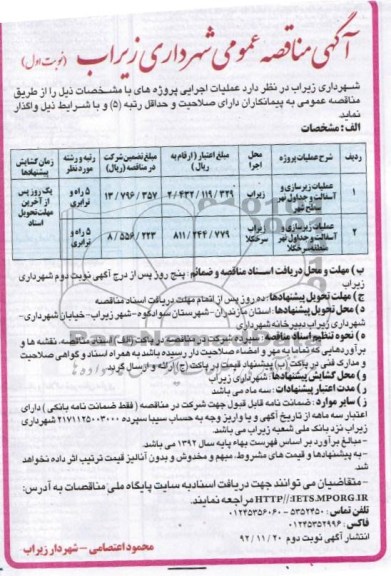 آگهی مناقصه عمومی شهرداری زیراب (نوبت اول)
شهرداری زیراب در نظر دارد عملیات اجرایی پروژه های با مشخصات ذیل را از طریق
مناقصه عمومی به پیمانکاران دارای صلاحیت و حداقل رتبه (۵) و با شرایط ذیل واگذار
نماید
الف: مشخصات
ردیف شرح عملیات پروژه محل اجرا مبلغ اعتبار (ارقام به ریال) مبلغ تضمین شرکت در مناقصه (ریال) رتبه و رشته مورد نظر زمان گشایش پیشنهادها
۱ عملیات زیرسازی و آسفالت و جداول نهر سطح شهر زیراب ۴/۴۳۲/۱۱۹/۳۲۹ ۱۳/۷۹۶/۳۵۷ ۵ راه و ترابری یک روز پس از آخرین مهلت تحویل اسناد
۲ عملیات زیرسازی و آسفالت و جداول نهر منطقه سرخکلا زیراب سرخکلا ۸۱۱/۲۴۴/۷۷۹ ۸/۵۵۶/۲۲۳ ۵ راه و ترابری
ب) مهلت و محل دریافت اسناد مناقصه و ضمائم: پنج روز پس از درج آگهی نوبت دوم شهرداری
زیراب
ج) مهلت تحویل پیشنهادها: ده روز پس از اتمام مهلت دریافت اسناد مناقصه
د) محل تحویل پیشنهادها: استان مازندران- شهرستان سوادکوه- شهر زیراب- خیابان شهرداری-
شهرداری زیراب دبیرخانه شهرداری
ه) نحوه تنظیم اسناد مناقصه: سپرده شرکت در مناقصه در پاکت (الف) اسناد مناقصه، نقشه ها و
برآوردهایی که تماما به مهر و امضاء صلاحیت دار رسیده باشد به همراه اسناد و گواهی صلاحیت
و مدارک فنی در پاکت (ب) پیشنهاد قیمت در پاکت (ج) ارائه و ارسال گردد
و) محل گشایش پیشنهادها: شهرداری زیراب
ر) مدت اعتبار پیشنهادات: سه ماه می باشد
ز) سایر موارد: ضمانت نامه قابل قبول جهت شرکت در مناقصه (فقط ضمانت نامه بانکی) دارای
اعتبار سه ماهه از تاریخ آگهی و یا واریز وجه به حساب سیبا سپرده ۲۱۷۱۱۲۵۰۰۳۰۰۰ شهرداری
زیراب نزد بانک ملی شعبه زیراب می باشد
-مبالغ برآورد بر اساس فهرست بهاء پایه سال ۱۳۹۲ می باشد.
-به پیشنهادها و قیمت های مشروط، مبهم و مخدوش و بدون آنالیز قیمت ترتیب اثر داده نخواهد
شد.
-متقاضیان می توانند جهت دریافت اسناد به سایت پایگاه ملی مناقصات به آدرس:
HTTP://IETS.MPORG.IR مراجعه نمایند.
تلفن تماس: ۵۳۵۲۴۵۰ - ۰۱۲۴۵۳۵۶۰۶۰
فاکس: ۰۱۲۴۵۳۵۲۹۹۶
انتشار آگهی نوبت دوم ۹۲/۱۱/۲۰
محمود اعتصامی - شهردار زیراب